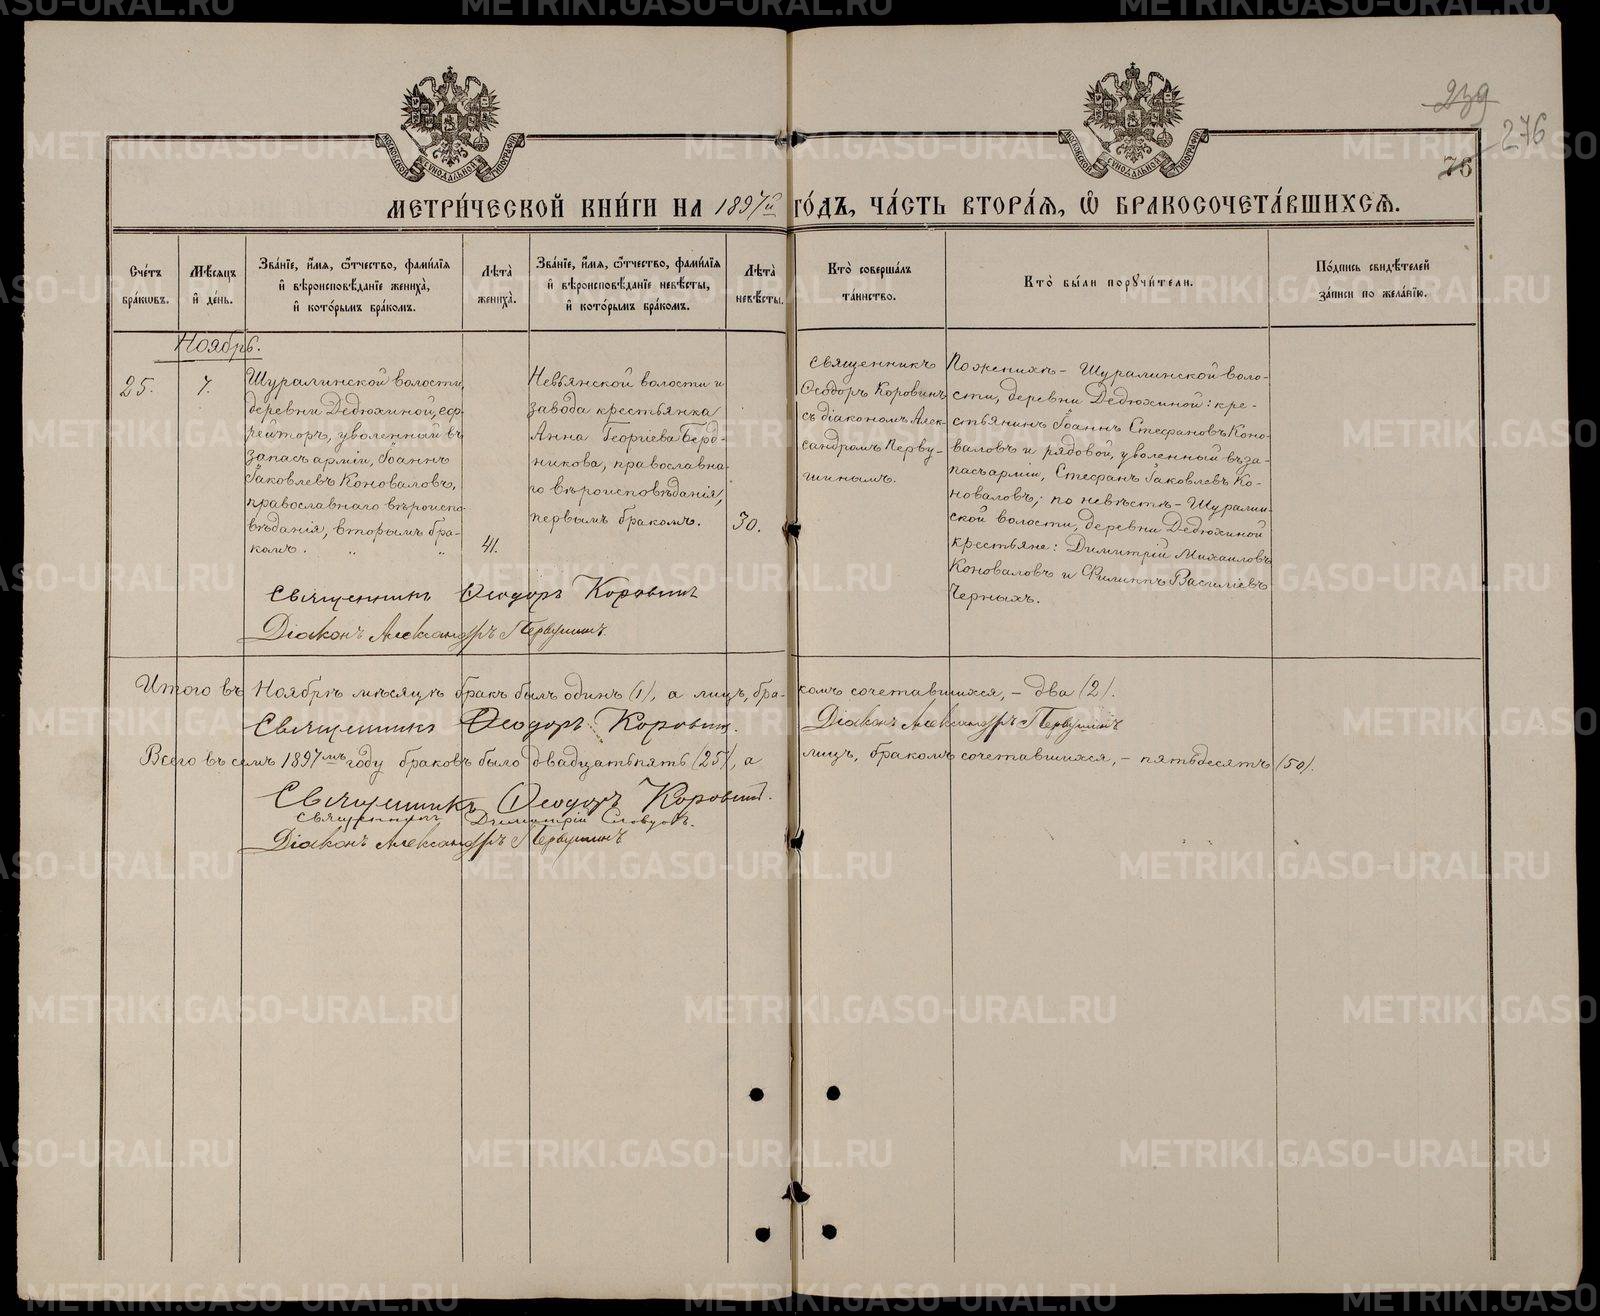 239
276
76
МЕТРИ́ЧЕСКОЙ КНИ́ГИ НА 1897й ГО́ДЪ, ЧА́СТЬ ВТОРА́Я, Ѡ БРАКОСОЧЕТА́ВШИХСЯ.
Сче́тъ бра́ковъ.
Мѣ́сяцъ и де́нь.
Зва́нїе, и́мя, ѻ́тчество, фами́лїя и вѣроисповѣ́данїе жениха̀, и кото́рымъ бра́комъ.
Лѣта̀ жениха̀.
Зва́нїе, и́мя, ѻ́тчество, фами́лїя и вѣроисповѣ́данїе невѣ́сты, и кото́рымъ бра́комъ.
Лѣта̀ невѣ́сты.
Кто̀ соверша́лъ та́инство.
Кто̀ бы́ли порꙋчи́тели.
По́дпись свидѣ́телей за́писи по жела́нїю.
Ноябрь.
25.
7.
Шуралинской волости,
деревни Дедюхиной, еф-
рейторъ, уволенный въ
запасъ арміи, Іоаннъ
Іаковлевъ Коноваловъ,
православнаго вѣроиспо-
вѣданія, вторымъ бра-
комъ. " "
41.
Невьянской волости и
завода крестьянка
Анна Георгіева Берд-
никова, православна-
го вѣроисповѣданія,
первымъ бракомъ.
30.
Священникъ
Ѳеодоръ Коровинъ
съ діакономъ Алек-
сандромъ Перву-
шинымъ.
По женихѣ - Шуралинской воло-
сти, деревни Дедюхиной: кре-
стьянинъ Іоаннъ Стефановъ Коно-
валовъ и рядовой, уволенный въ за-
пасъ арміи, Стефанъ Іаковлевъ Ко-
новаловъ; по невѣстѣ - Шуралин-
ской волости, деревни Дедюхиной
крестьяне: Димитрій Михаиловъ
Коноваловъ и Филиппъ Василіевъ
Черныхъ.
Священникъ Ѳеодоръ Коровинъ
Діаконъ Александръ Первушинъ.
Итого въ Ноябрѣ мѣсяцѣ бракъ былъ одинъ (1), а лицъ, бра- комъ сочетавшихся, - два (2).
Священникъ Ѳеодоръ Коровинъ. Діаконъ Александръ Первушинъ
Всего въ семъ 1897мъ году браковъ было двадцать пять (25), а лицъ, бракомъ сочетавшихся, - пятьдесятъ (50).
Священникъ Ѳеодоръ Коровинъ.
Священникъ Димитрій Словцовъ.
Діаконъ Александръ Первушинъ
METRIKI.GASO-URAL.RU